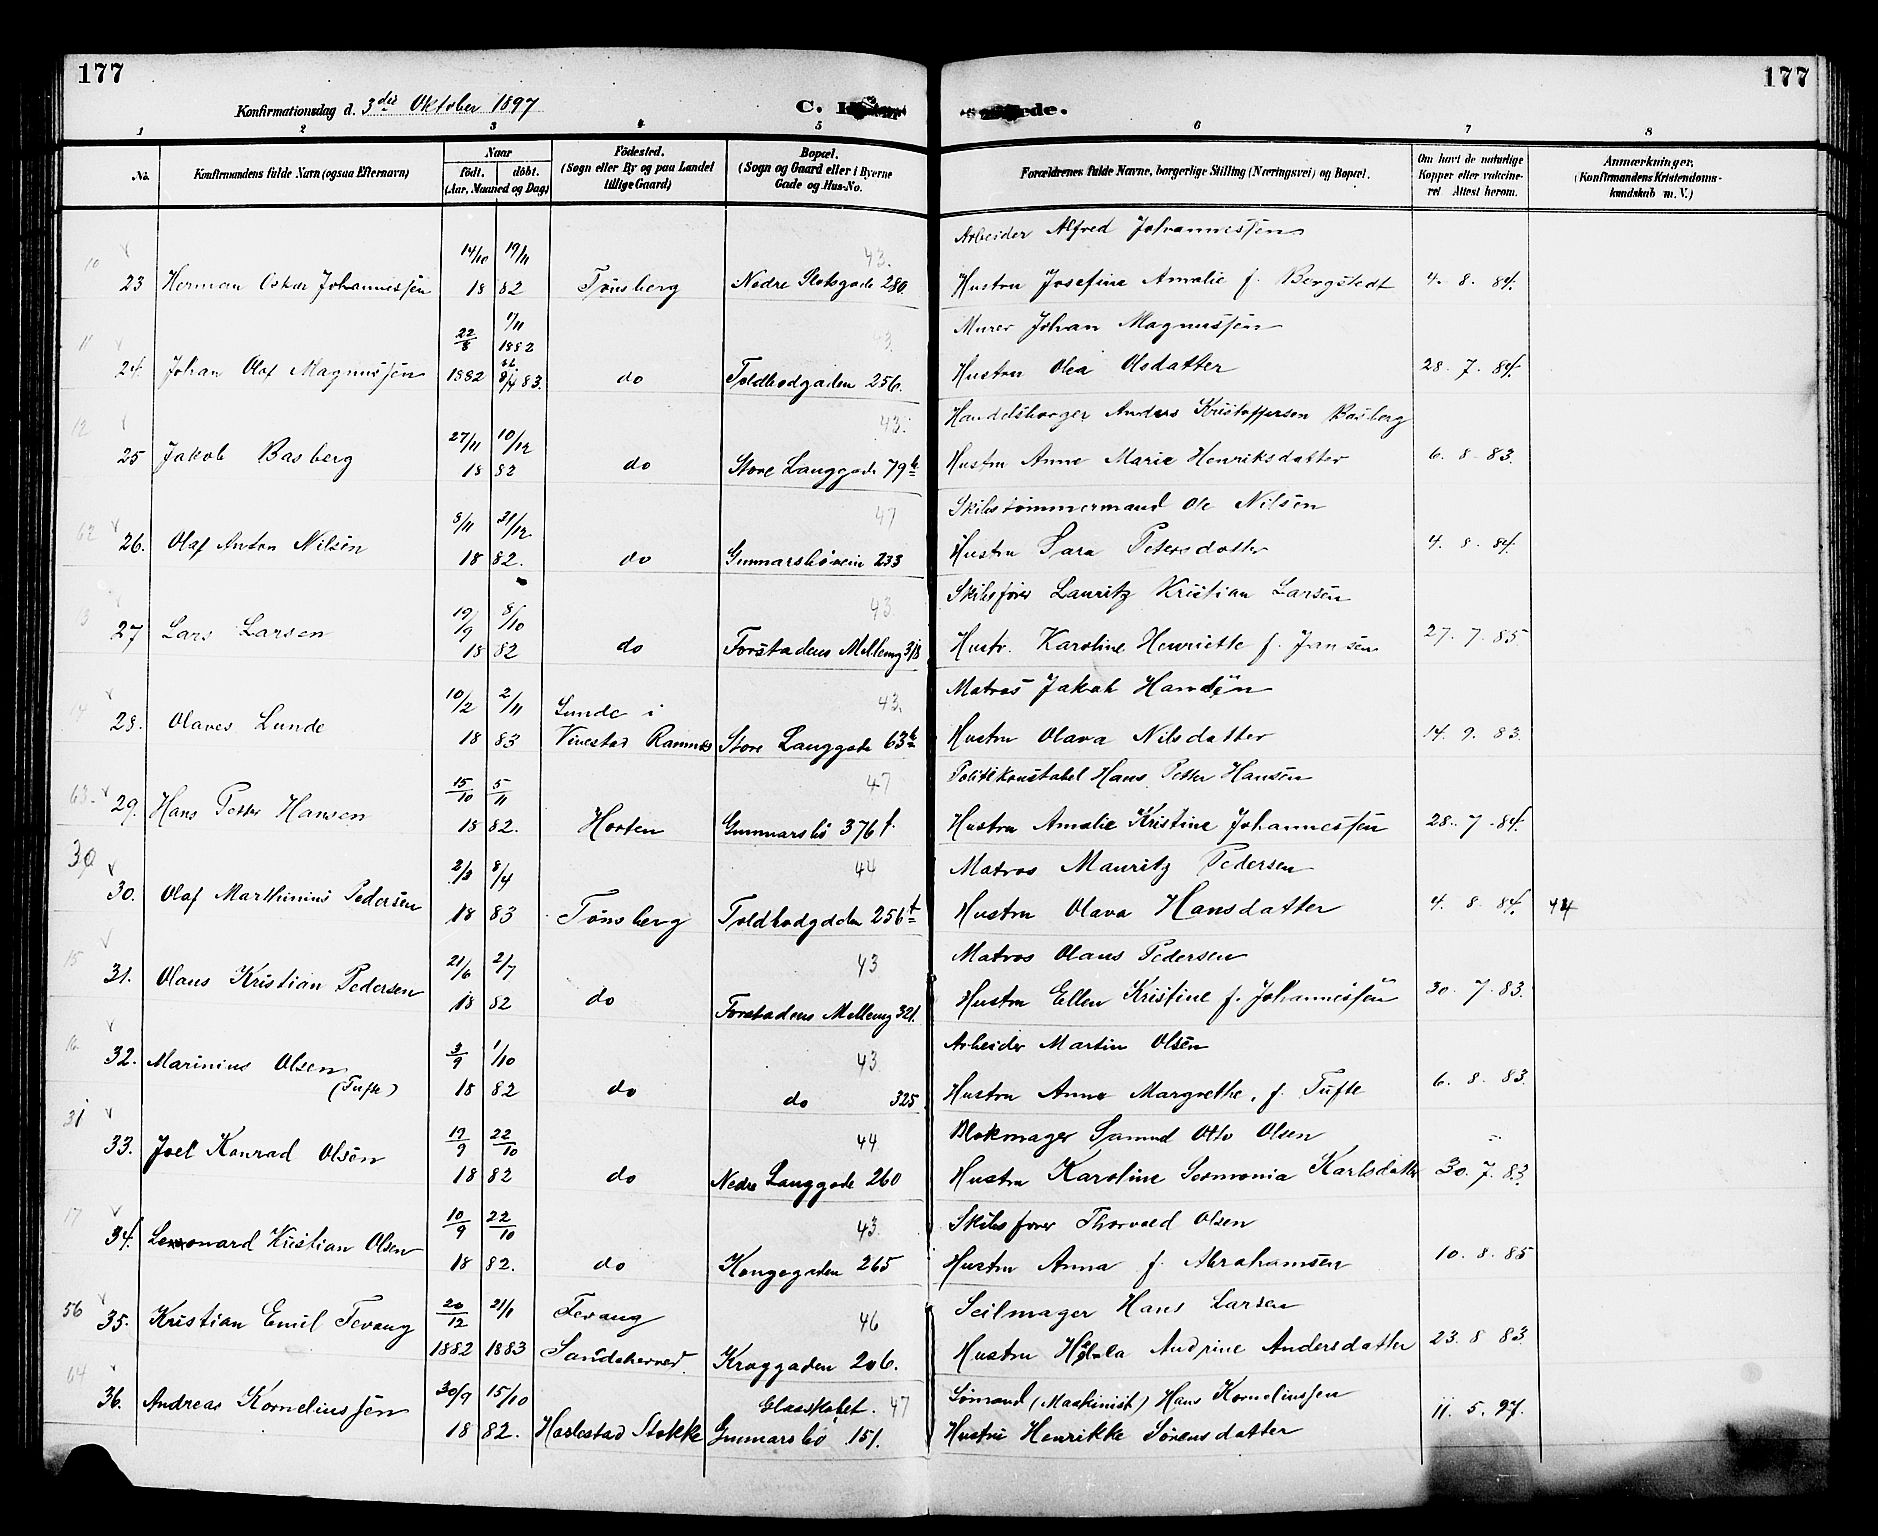 177
177
Konfirmationsdag d. 3die Oktober 1897
C.
1 2 3 4 5 6 7 8
No.
Konfirmandens fulde Navn (ogsaa Efternavn)
Naar
födt. döbt.
(Aar, Maaned og Dag)
Födested.
(Sogn eller By og paa Landet
tillige Gaard)
Bopæl.
(Sogn og Gaard eller i Byerne
Gade og Hus-No.
Forældrenes fulde Navne, borgerlige Stilling (Næringsvei) og Bopæl.
Om havt de naturlige
Kopper eller vaccine-
ret Attest herom.
Anmærkninger,
(Konfirmandens Kristendoms-
kundskab m. V.)
14/10 19/11 43. Arbeider Alfred Johannessen
10 23 Herman Oskar Johannessen 18 82 Tønsberg Nedre Slotsgade 280. Hustru Josefine Amalie f. Bergstedt 4. 8. 84.
22/8 1/11 1882 43. Murer Johan Magnussen
11 24. Johan Olaf Magnussen 1882 8/4 83. do Toldbodgaden 256. Hustru Olea Olsdatter 28. 7. 84.
27/11 10/12 43. Handelsborger Anders Kristoffersen Basberg
12 25 Jakob Basberg 18 82 do Store Langgade 79b Hustru Anne Marie Henriksdatter 6. 8. 83.
8/11 31/12 47 Skibstømmermand Ole Nilsen
62 26. Olaf Anton Nilsen 18 82. do Gunnarsbøvein 233 Hustru Sara Petersdatter 4. 8. 84.
19/9 8/10 43. Skibsfører Lauritz Kristian Larsen
13 27 Lars Larsen 18 82 do Forstadens Mellemg 318 Hustr. Karoline Henriette f. Jansen 27. 7. 85.
10/2 2/11 Lunde i 43. Matros Jakob Hansen
14 28. Olaves Lunde 18 83 Vivestad Ramnes Store Langgade 63b Hustru Olava Nilsdatter 14. 9. 83.
15/10 5/11 47 Politikonstabel Hans Petter Hansen
63. 29. Hans Petter Hansen 18 82. Horten Gunnarsbø 376 f. Hustru Amalie Kristine Johannessen 28. 7. 84.
2/3 8/4 44 Matros Mauritz Pedersen
30 30. Olaf Marthinius Pedersen 18 83 Tønsberg Toldbodgaden 256 Hustru Olava Hansdatter 4. 8. 84. 44
21/6 2/7 43 Matros Olaus Pedersen
15 31. Olaus Kristian Pedersen 18 82 do Forstadens Mellemg 321. Hustru Ellen Kristine f. Johannessen 30. 7. 83.
3/9 1/10 43 Arbeider Martin Olsen
16 32. Marinius Olsen (Tufte) 18 82 do do 325 Hustru Anne Margrethe, f. Tufte 6. 8. 83.
19/9 22/10 44 Blokmager Samuel Otto Olsen
31 33. Joel Konrad Olsen 18 82 do Nedre Langgade 260 Hustru Karoline Karlsdatter 30. 7. 83.
10/9 22/10 43. Skibsfører Thorvald Olsen
17 34. Leonard Kristian Olsen 18 82. do Kongegaden 265 Hustru Anna f. Abrahamsen 10. 8. 85
20/12 21/1 Fevang 46 Seilmager Hans Larsen
56 35. Kristian Emil Fevang 1882 1883 Sandeherred Kraggaden 206. Hustru Andrine Andersdatter 23. 8. 83
30/9 15/10 Glasskabet. 47 Sømand (Maskinist) Hans Korneliussen
64 36. Andreas Korneliussen 18 82. Harlestad Stokke Gunnarsbø 151. Hustru Henrikke Sørensdatter 11. 5. 97.